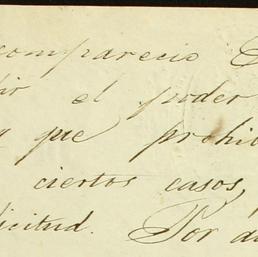 comparecio
el poder
que prohi
ciertos casos,
licitud. Por